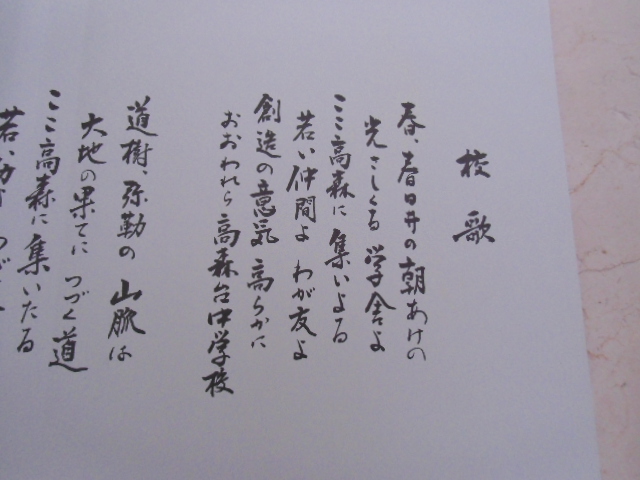 校歌
春、春日井の朝あけの
光さしくる学舎よ
ここ高森に集いよる
若い仲間よ わが友よ
創造の意気 高らかに
おおわれら 高森台中学校
道樹、弥勒の山脈は
大地の果てに つづく道
ここ高森に集いたる
若い力